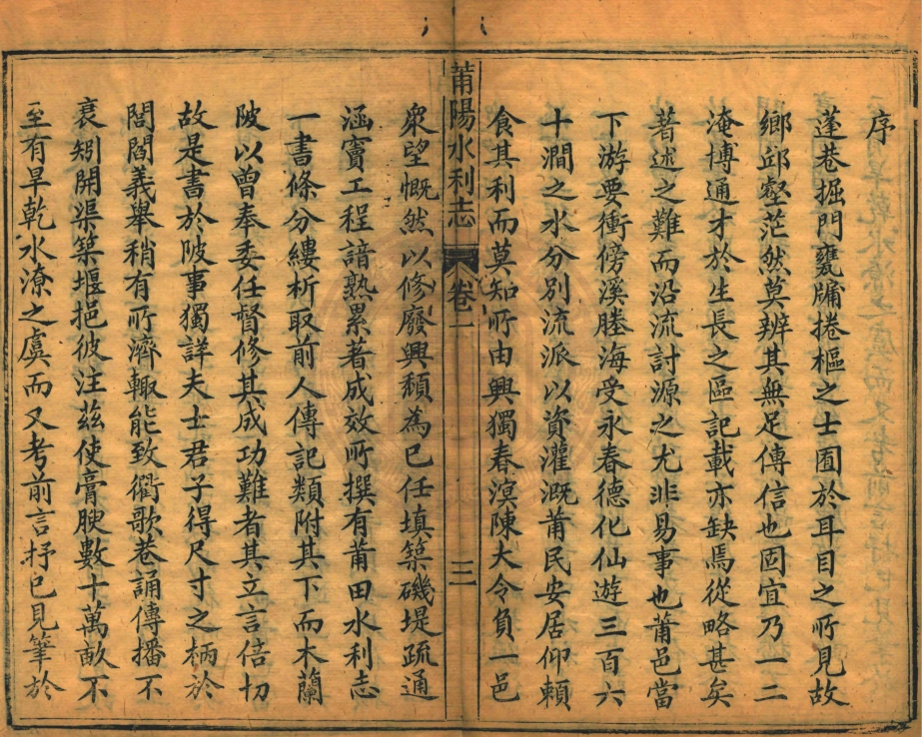 序
蓬巷掘門甕牖捲樞之士囿於耳目之所見故
鄉邱壑茫然莫辨其無足傳信也固宜乃一二
淹博通才於生長之區記載亦缺焉從略甚矣
著述之難而沿流討源之尤非易事也莆邑當
下游要衝傍溪塍海受永春德化仙遊三百六
十澗之水分別流派以資灌溉莆民安居仰賴
食其利而莫知所由興獨春溟陳大令負一邑
莆陽水利志 卷一 三
衆望慨然以修廢興頹為已任填築磯堤疏通
涵竇工程諳熟累著成效所撰有莆田水利志
一書條分縷析取前人傳記類附其下而木蘭
陂以曾奉委任督修其成功難者其立言倍切
故是書於陂事獨詳夫士君子得尺寸之柄於
閭閻義舉稍有所濟輒能致衢歌巷誦傳播不
衰矧開渠築堰挹彼注茲使膏腴數十萬畝不
至有旱乾水潦之虞而又考前言抒已見筆於